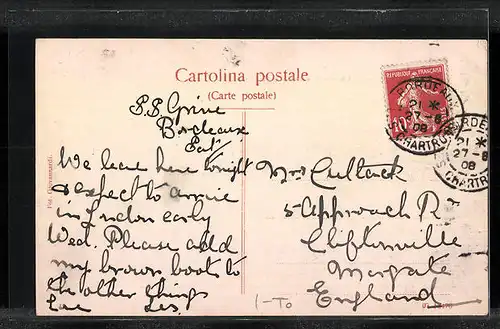 Cartolina postale
(Carte postale)
REPUBLIQUE FRANÇAISE
10
BORDEAUX
21 *
27-8
08
CHARTRONS
BORDEAUX
21 *
27-8
08
CHARTRONS
S.S.
Bordeaux
Sat
We leave here tonight
& expect to arrive
in London early
Wed. Please add
my brown boots to
the other things
Les
Mrs
5 Approach R
Cliftonville
Margate
England
1-To
Fot. Giovannardi.